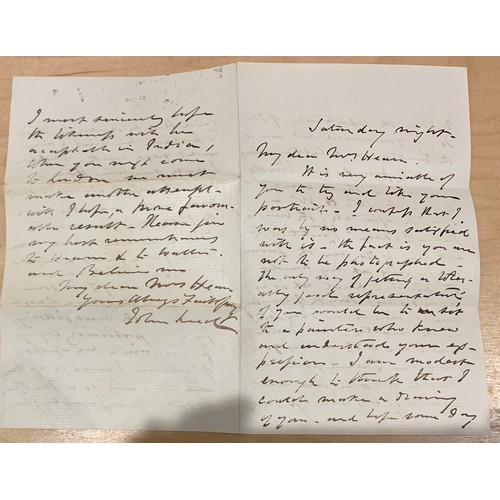 Saturday night -
My dear Mrs Hearn.
It is very amiable of
you to try and like your
portrait - I confess that I
was by no means satisfied
with it - the fact is you are
not to be photographed -
The only way of getting a toler-
ably good representation
of you would be to sit
to a painter who knew
and understood your ex-
pression. I am modest
enough to think that I
could make a drawing
of you - and hope some day
I most sincerely hope
the will be
acceptable in India,
When you next come
to London we must
make another attempt -
with I hope, a more favour-
able result - Please join
my best remembrances
to Hearn & to Walter -
and Believe me
My dear Mrs Hearn
Yours Always Faithfully
John